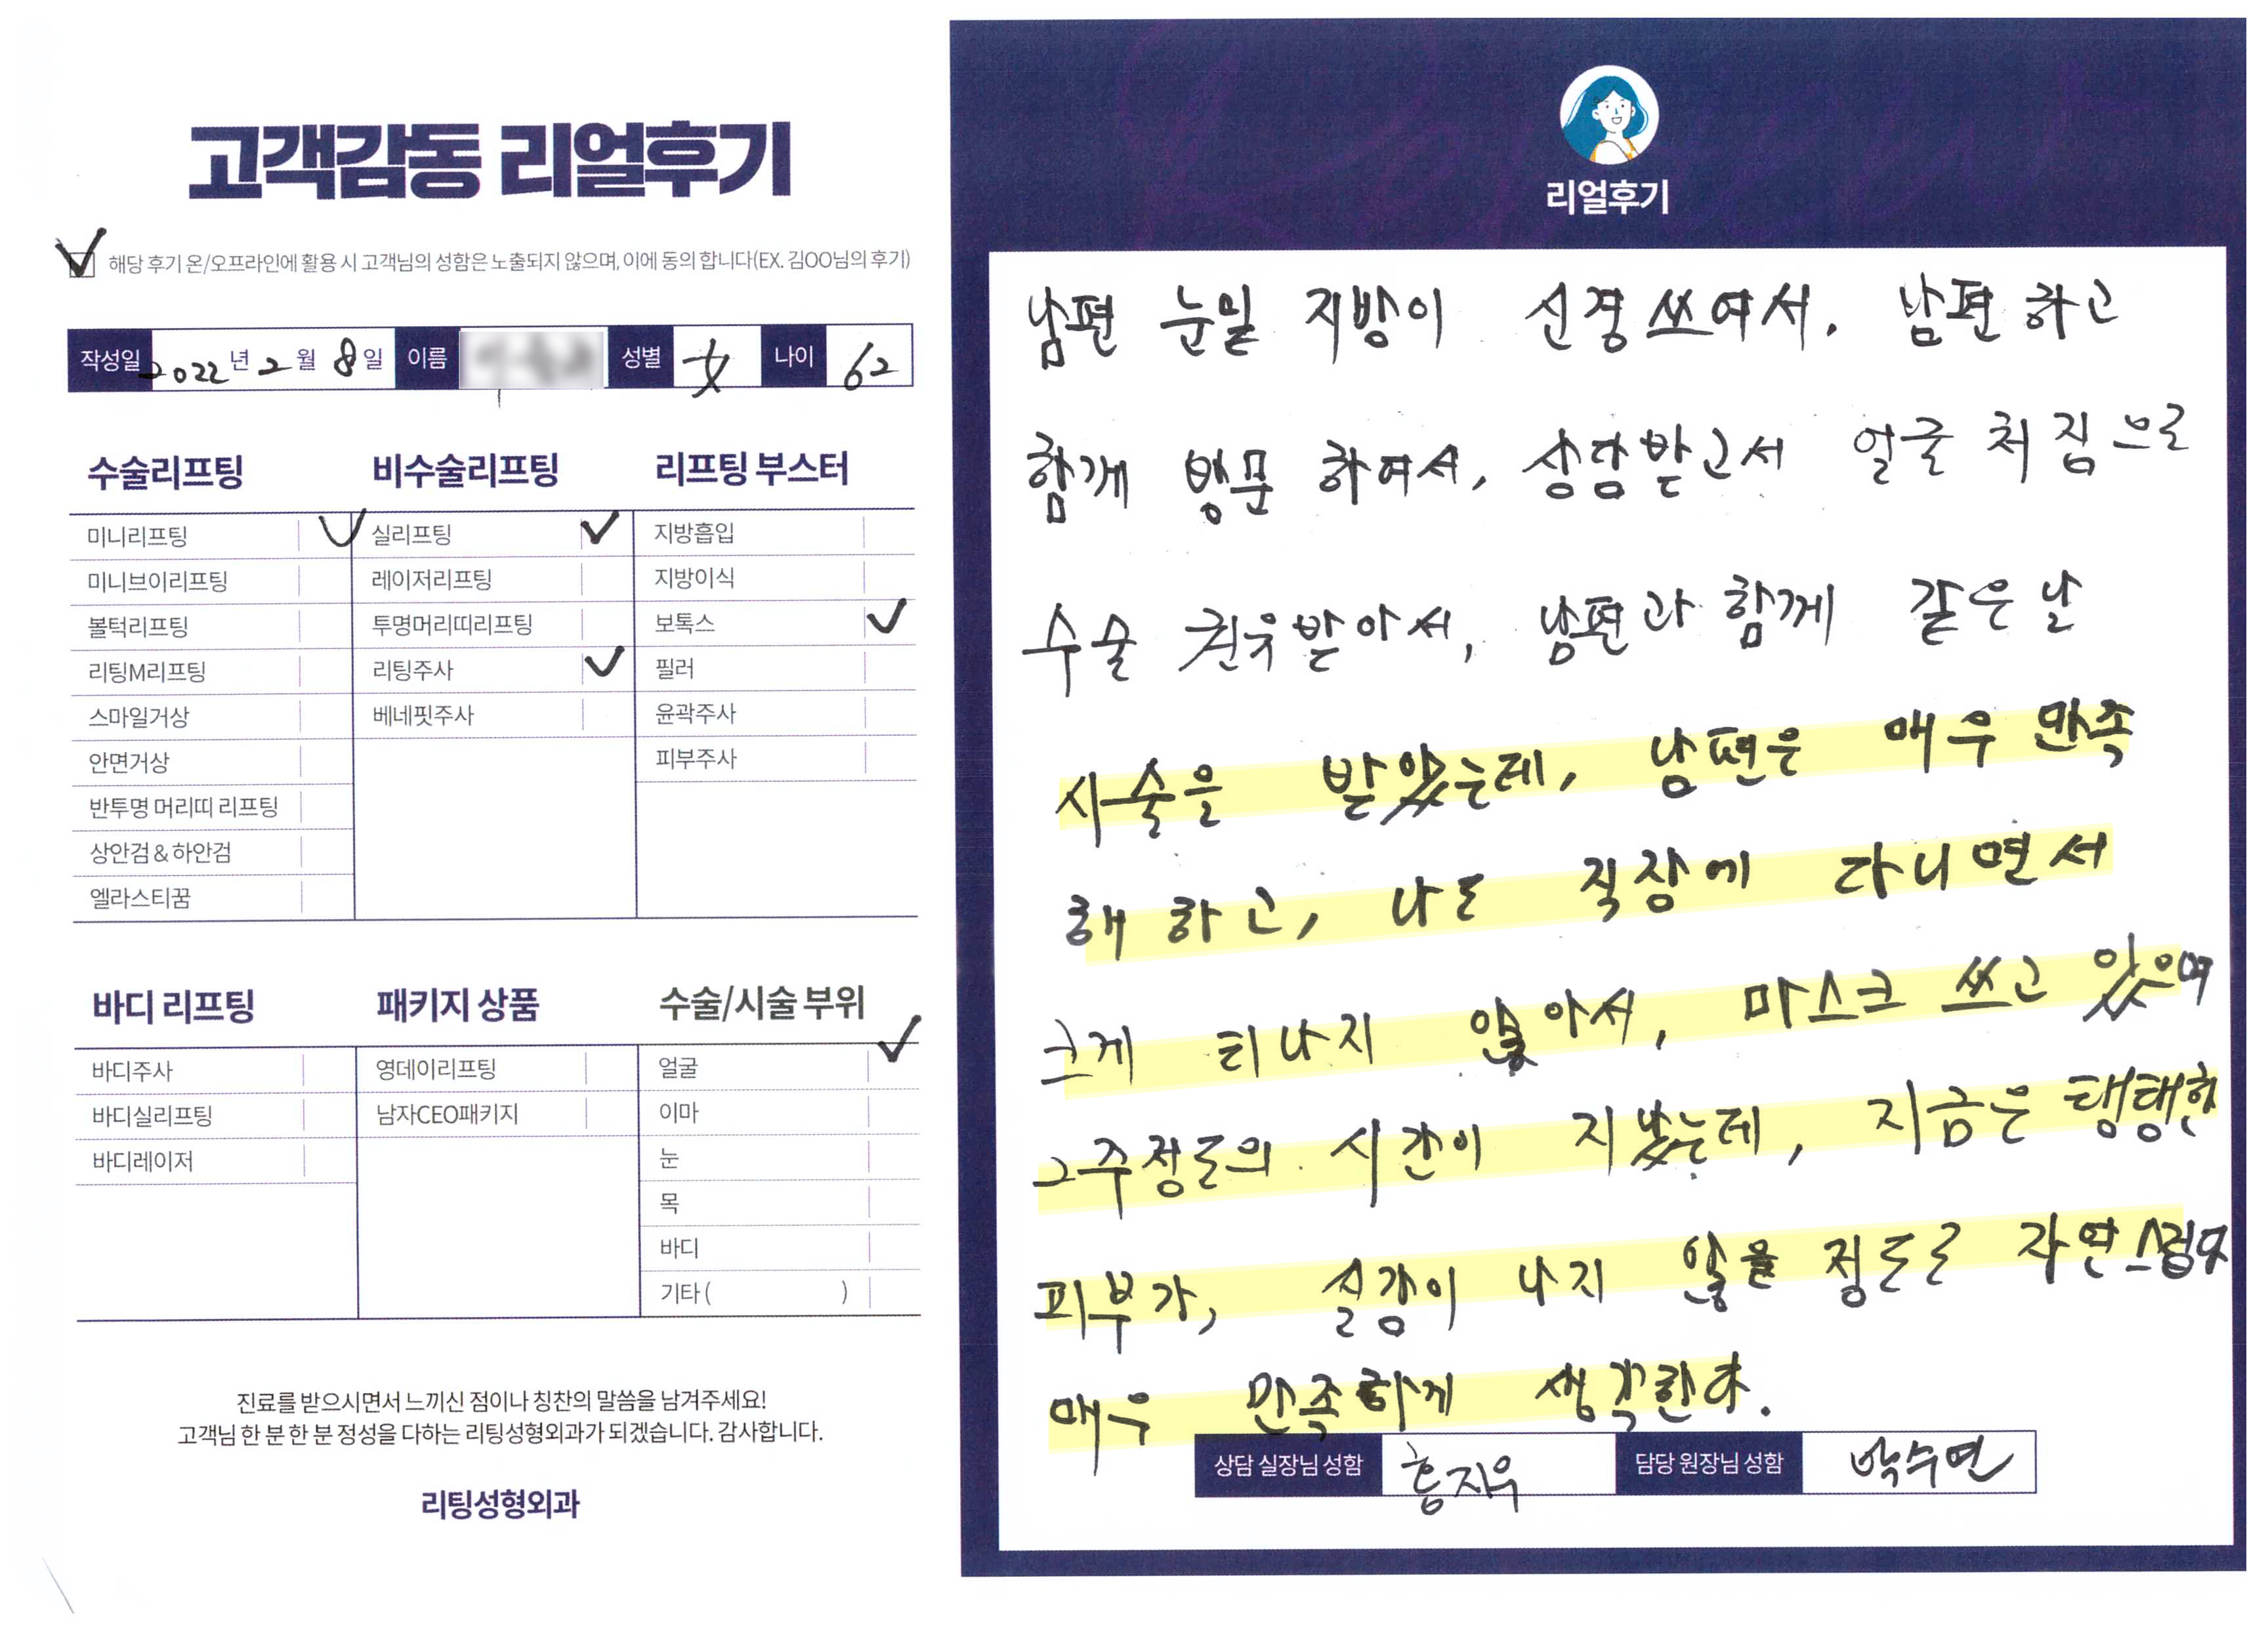 고객감동 리얼후기
해당 후기 온/오프라인에 활용 시 고객님의 성함은 노출되지 않으며, 이에 동의 합니다(EX. 김OO님의 후기)
작성일 2022 년 2 월 8 일 이름 성별 女 나이 62
수술리프팅 비수술리프팅 리프팅 부스터
미니리프팅 실리프팅 지방흡입
미니브이리프팅 레이저리프팅 지방이식
볼턱리프팅 투명머리띠리프팅 보톡스
리팅M리프팅 리팅주사 필러
스마일거상 베네핏주사 윤곽주사
안면거상 피부주사
반투명 머리띠 리프팅
상안검 & 하안검
엘라스티꿈
바디 리프팅 패키지 상품 수술/시술 부위
바디주사 영데이리프팅 얼굴
바디실리프팅 남자CEO패키지 이마
바디레이저 눈
목
바디
기타 ( )
진료를 받으시면서 느끼신 점이나 칭찬의 말씀을 남겨주세요!
고객님 한 분 한 분 정성을 다하는 리팅성형외과가 되겠습니다. 감사합니다.
리팅성형외과
리얼후기
남편 눈밑 지방이 신경 쓰여서, 남편 하고
함께 방문 하여서, 상담받고서 얼굴 처짐으로
수술 권유받아서, 남편과 함께 같은 날
시술을 받았는데, 남편은 매우 만족
해 하고, 나도 직장에 다니면서
크게 티나지 않아서, 마스크 쓰고 있으며
2주정도의 시간이 지났는데, 지금은 탱탱한
피부가, 실감이 나지 않을 정도로 자연스럽다
매우 만족하게 생각한다.
상담 실장님 성함 홍지우 담당 원장님 성함 박수연